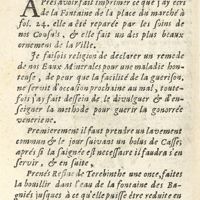 APrés avoir fait imprimer ce que j'ay écrit
de la Fontaine de la place du marché à
fol. 24. elle a été reparée par les soins de
nos Consuls, & elle fait un des plus beaux
ornemens de la Ville.
Je faisois religion de declarer un remede
de nos Eaux Minerales pour une maladie hon-
teuse, de peur que la facilité de la guerison,
ne servit d'occasion prochaine au mal, toute-
fois j'ay fait dessein de le divulguer & d'en-
seigner la methode pour guerir la gonorrée
venerienne.
Premierement il faut prendre un lavement
commun & le jour suivant un bolus de Casse,
aprés si la saignée est necessaire il faudra s'en
servir, & en suite.
Prenés Resine de Terebinthe une once, faites
la bouillir dans l'eau de la fontaine des Ba-
gniés jusques à ce qu'elle puisse être reduite en